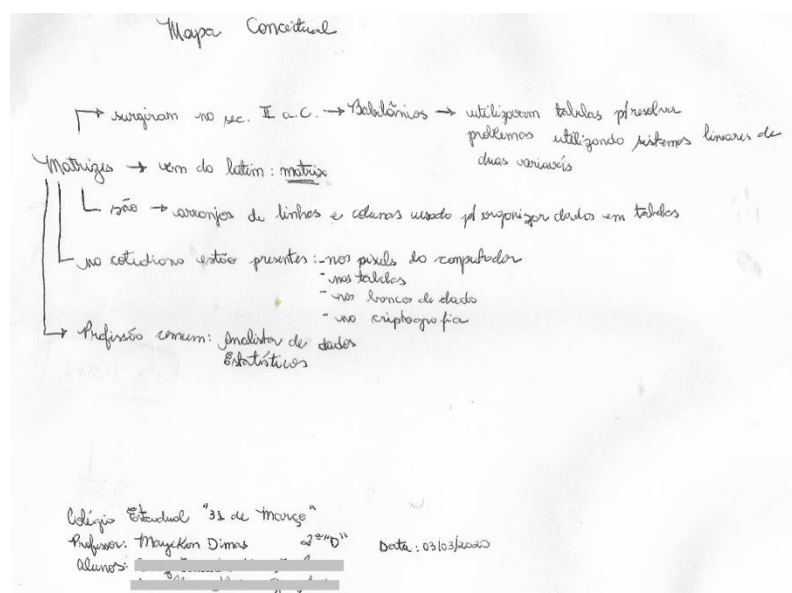 Mapa Conceitual
→ surgiram no sec. II a.C. → Babilônios → utilizavam tabelas p/ resolver
problemas utilizando sistemas lineares de
duas variavéis
Matrizes → vem do latim: matrix
são → arranjos de linhas e colunas usado p/ organizar dados em tabelas
no cotidiano estão presentes: - nos pixels do computador
- nas tabelas
- nos bancos de dado
- na criptografia
→ Profissão comum: Analista de dados
Estatísticos
Colégio Estadual "31 de Março"
Professor: Mayckon Dimas 2ª "D" Data: 03/03/2020
Alunos: